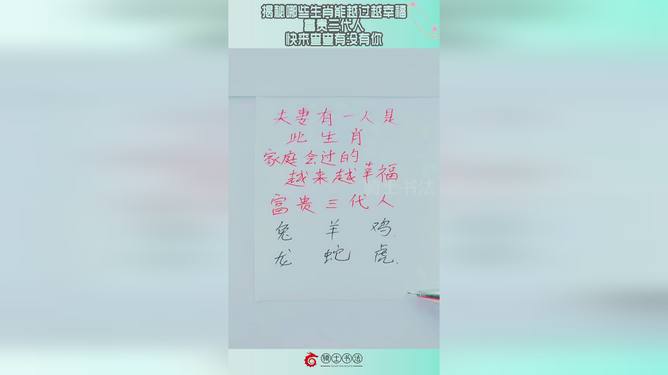 揭秘哪些生肖能越过越幸福
富贵三代人
快来看看有没有你
夫妻有一人是
此生肖
家庭会过的
越来越幸福
富贵三代人
兔 羊 鸡
龙 蛇 虎
骑士书法